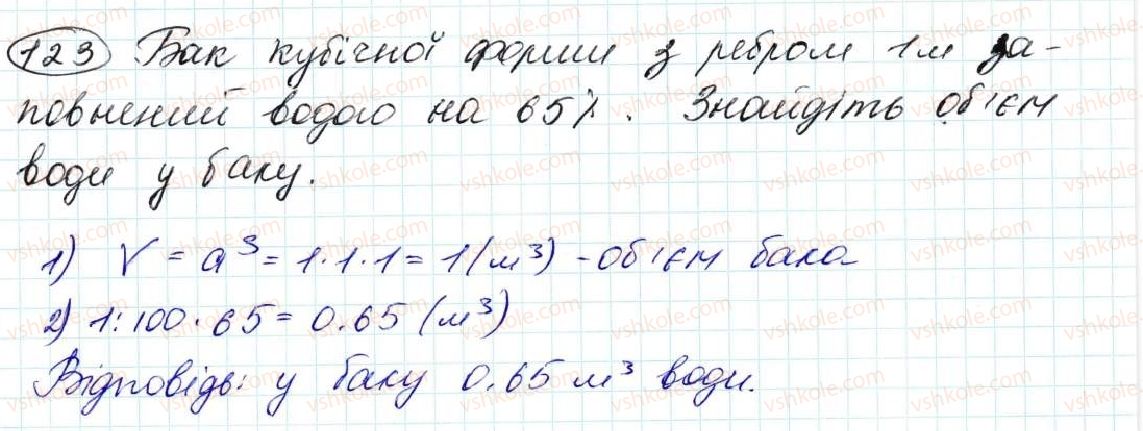 123 Бак кубічної форми з ребром 1м за-
повнений водою на 65%. Знайдіть об'єм
води у баку.
1) V = a³ = 1·1·1 = 1(м³) - об'єм бака
2) 1:100·65 = 0.65 (м³)
Відповідь: у баку 0.65 м³ води.